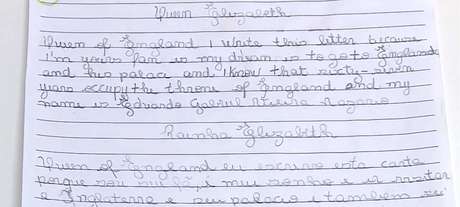 Queen Elizabeth
Queen of England I write this letter because
I'm yours fan is my dream is to go to England
and his palaci and I know that sixty-seven
years occupy the throne of England and my
name is Eduardo Gabriel Nazario
Rainha Elizabeth
Queen of England eu escrevo esta carta
porque sou seu fã, e meu sonho e ir visitar
a Inglaterra e seu palacio e tambem sei